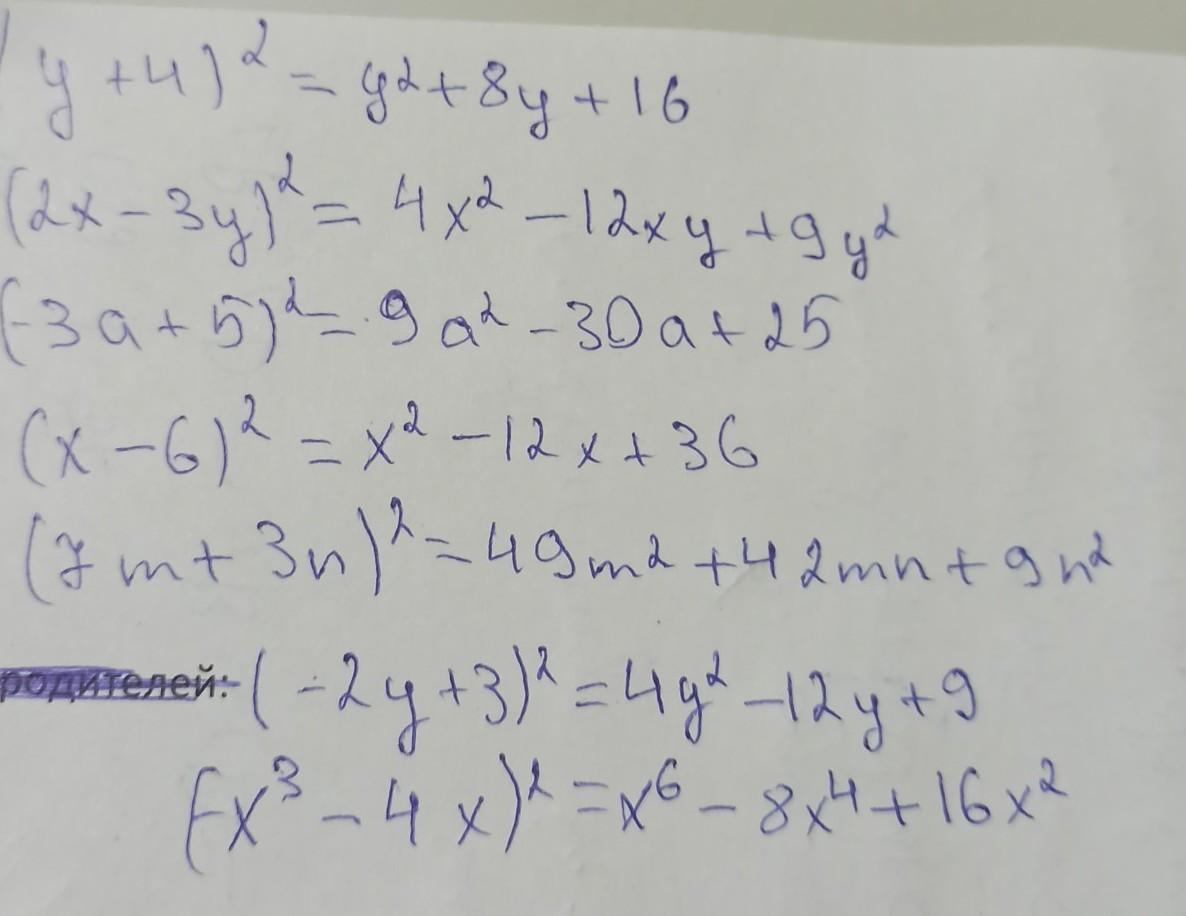 (y + 4)² = y² + 8y + 16
(2x - 3y)² = 4x² - 12xy + 9y²
(-3a + 5)² = 9a² - 30a + 25
(x - 6)² = x² - 12x + 36
(7m + 3n)² = 49m² + 42mn + 9n²
родителей: (-2y + 3)² = 4y² - 12y + 9
(-x³ - 4x)² = x⁶ - 8x⁴ + 16x²